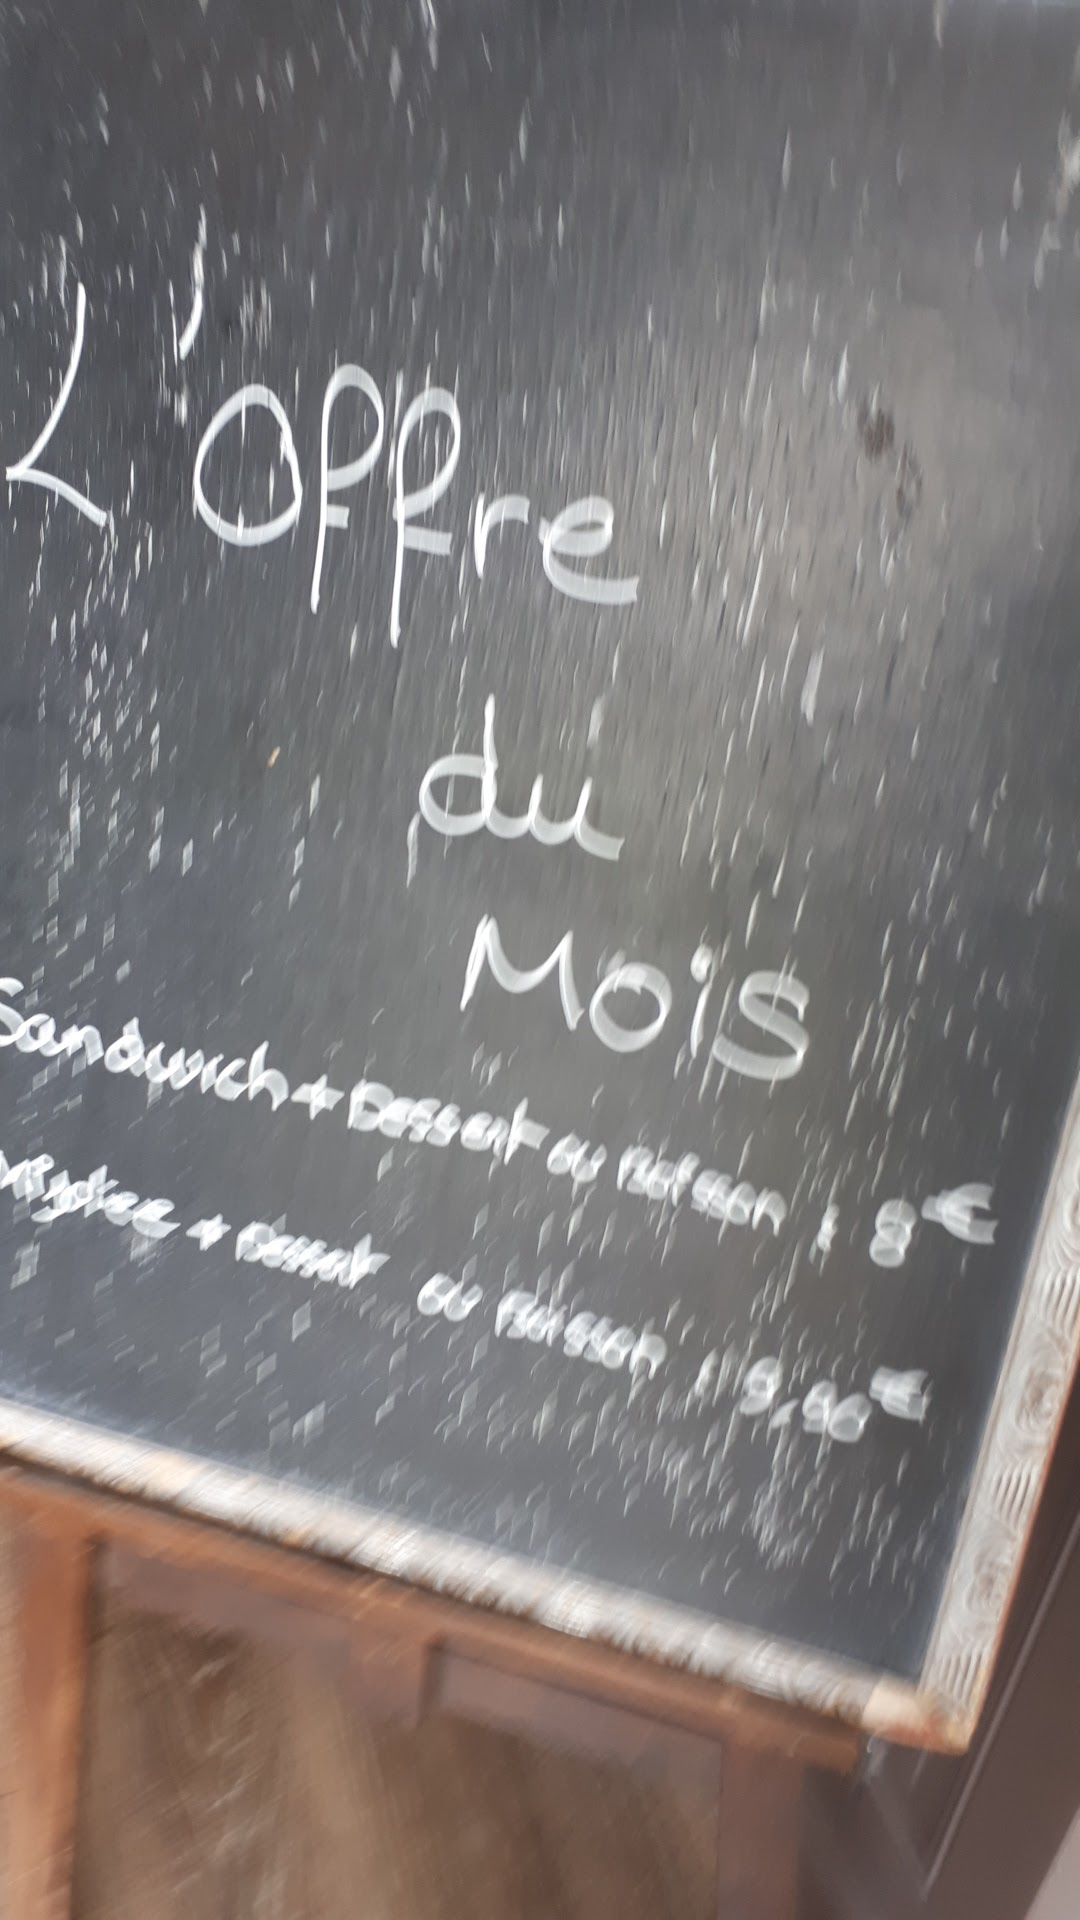 L'Offre
du
Mois
Sandwich + Dessert ou Boisson : 8€
+ Dessert ou Boisson : 9,90€